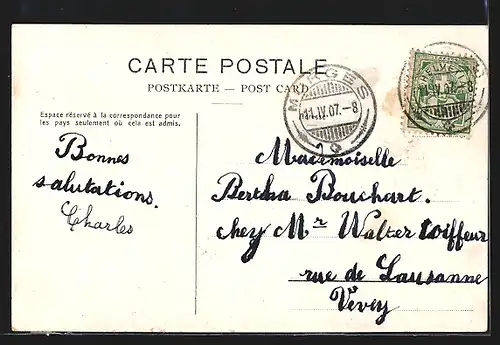 CARTE POSTALE
POSTKARTE — POST CARD
Espace réservé à la correspondance pour
les pays seulement où cela est admis.
MORGES
11.IV.07.-8
HELVETIA
IV.07.-8
Bonnes
salutations.
Charles
Mademoiselle
Bertha Bouchart.
chez Mr Walter coiffeur
rue de Lausanne
Vevey